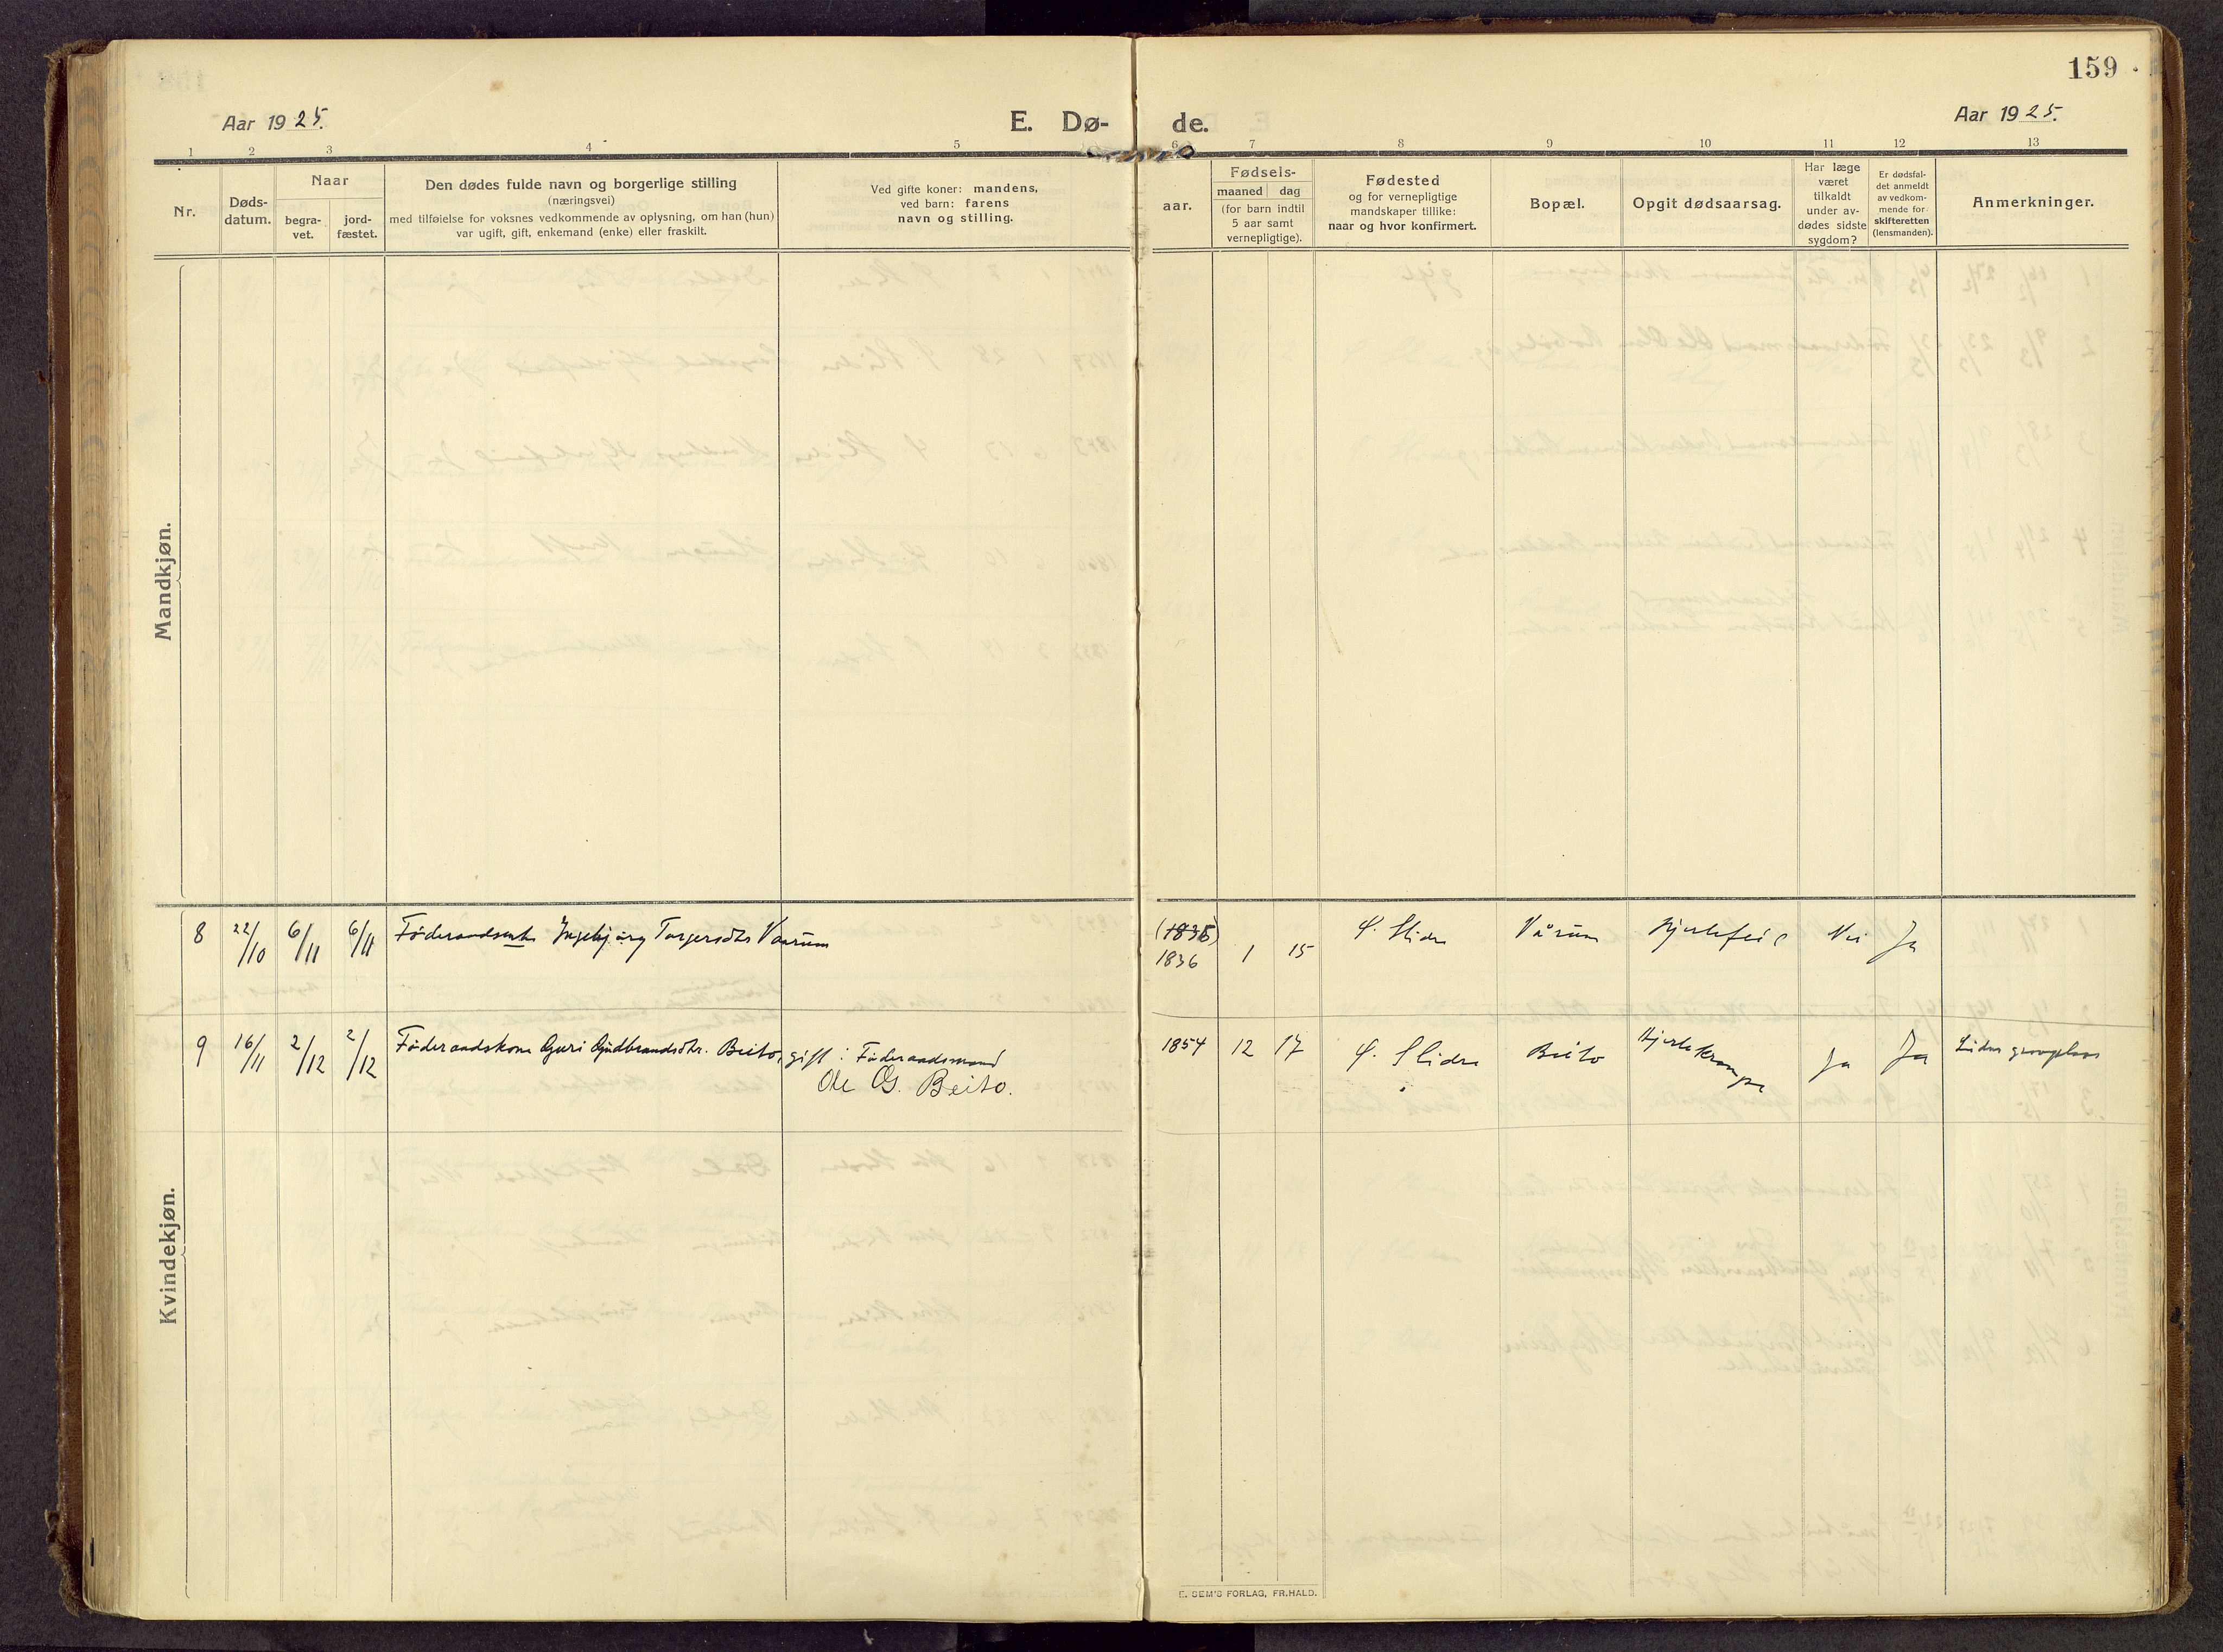 159
Aar 1925.
E. Dø- de.
Aar 1925.
1 2 3 4 5 6 7 8 9 10 11 12 13
Nr.
Døds-
datum.
Naar
begra-
vet.
jord-
fæstet.
Den dødes fulde navn og borgerlige stilling
(næringsvei)
med tilføielse for voksnes vedkommende av oplysning, om han (hun)
var ugift, gift, enkemand (enke) eller fraskilt.
Ved gifte koner: mandens,
ved barn: farens
navn og stilling.
aar.
Fødsels-
maaned dag
(for barn indtil
5 aar samt
vernepligtige).
Fødested
og for vernepligtige
mandskaper tillike:
naar og hvor konfirmert.
Bopæl.
Opgit dødsaarsag.
Har læge
været
tilkaldt
under av-
dødes sidste
sygdom?
Er dødsfal-
det anmeldt
av vedkom-
mende for
skifteretten
(lensmanden).
Anmerkninger.
Mandkjøn.
Kvindekjøn.
8 22/10 6/11 6/11 Føderaadsenke Ingebjørg Torgersdtr Vaarum (1835) 1 15 Ø. Slidre Vårum Hjertefeil Nei Ja
1836
9 16/11 2/12 2/12 Føderaadskone Guri Gudbrandsdtr. Beito, gift: Føderaadsmand 1854 12 17 Ø. Slidre Beito Hjertekrampe Ja Ja Lidar gravplass
Ole G. Beito.
E. SEM'S FORLAG, FR.HALD.